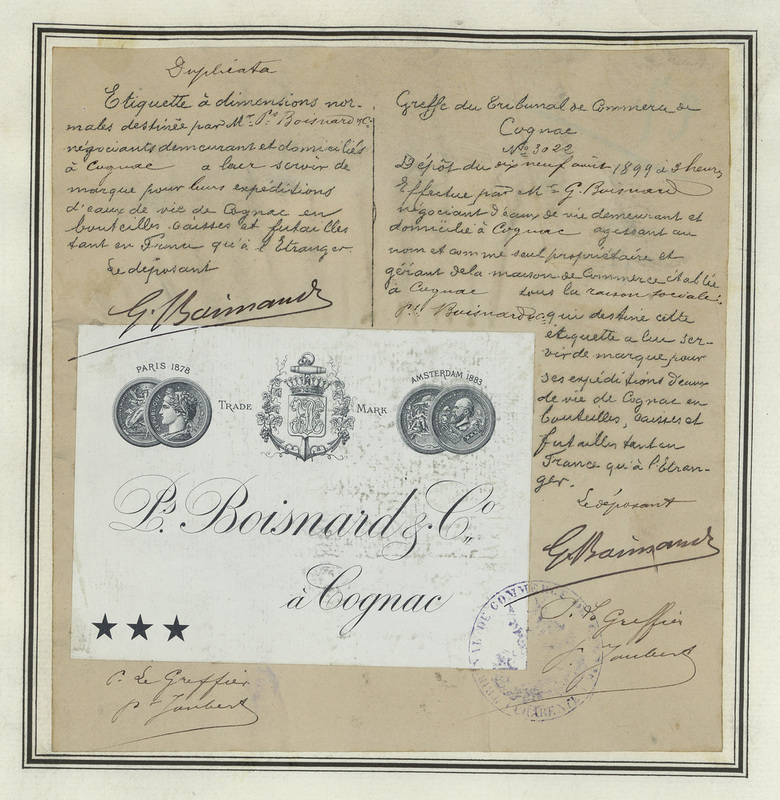 Duplicata
Etiquette à dimensions nor-
males destinée par Mr. Ps. Boisnard & Co
négociants demeurant et domiciliés
à Cognac a leur servir de
marque pour leurs expéditions
d'eaux de vie de Cognac en
bouteilles, caisses et futailles
tant en France qu'à l'Etranger.
Le déposant
G. Boisnard
Greffe du Tribunal de Commerce de
Cognac
No 3022
Dépôt du dix neuf août 1899 à 3 heures
Effectué par Mr G. Boisnard
négociant d'eaux de vie demeurant et
domicilié à Cognac agissant au
nom et comme seul propriétaire et
gérant de la maison de Commerce établie
à Cognac sous la raison sociale:
Ps. Boisnard & Co qui destine cette
étiquette a lui ser-
vir de marque pour
ses expéditions d'eaux
de vie de Cognac en
bouteilles, caisses et
futailles tant en
France qu'à l'Etran-
ger.
Le déposant
G. Boisnard
PARIS 1878
TRADE MARK
AMSTERDAM 1883
Ps. Boisnard & Co.
à Cognac
P. Le Greffier
Joubert
P. Le Greffier
Joubert
DE COMMERCE
CHARENTE